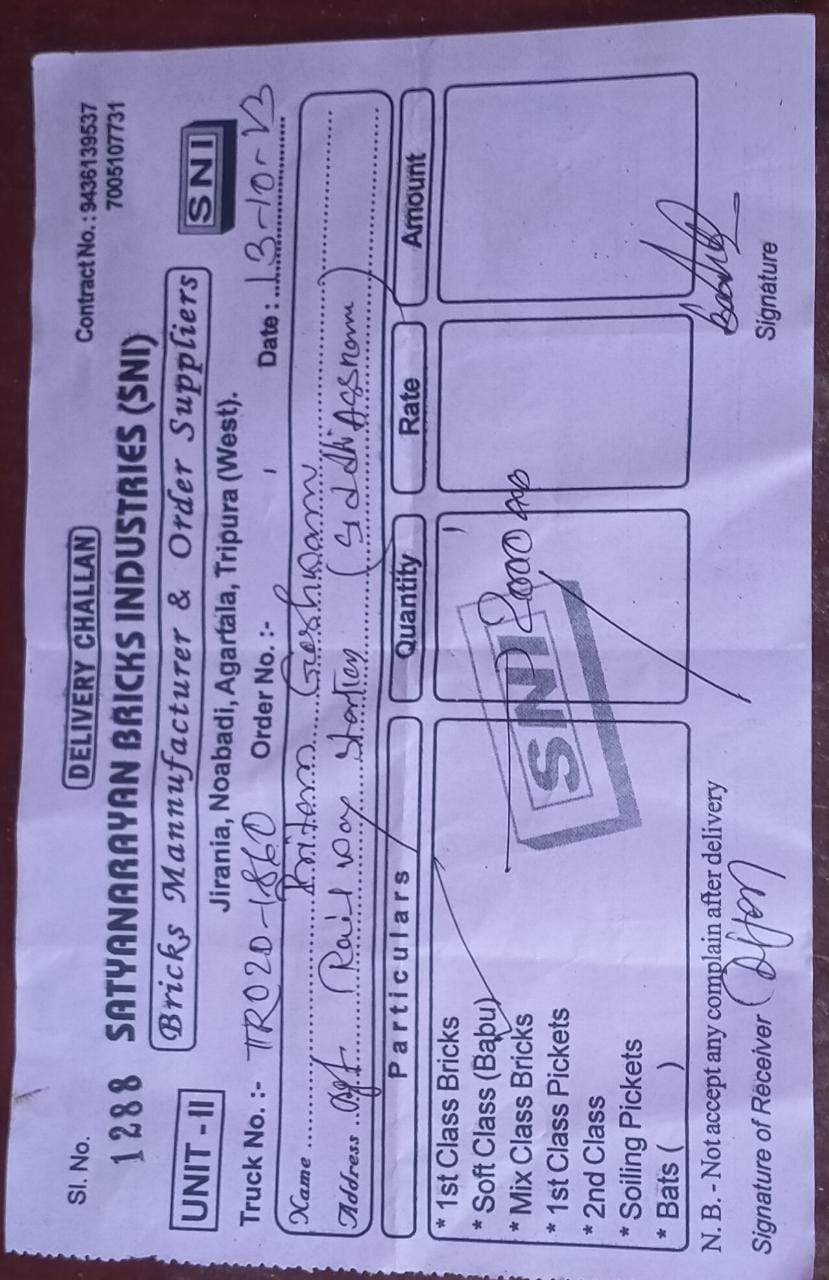 DELIVERY CHALLAN
Sl. No.
1288
Contract No. : 9436139537
7005107731
SATYANARAYAN BRICKS INDUSTRIES (SNI)
UNIT - II
Bricks Mannufacturer & Order Suppliers
SNI
Jirania, Noabadi, Agartala, Tripura (West).
Truck No. :- TR02D-1860 Order No. :- Date : 13-10-23
Name Goshwami
Address Agt. Railway Station (Siddhi Assram)
Particulars Quantity Rate Amount
* 1st Class Bricks
* Soft Class (Babu)
* Mix Class Bricks
* 1st Class Pickets
* 2nd Class
* Soiling Pickets
* Bats ( )
2000
SNI
N. B. - Not accept any complain after delivery
Signature of Receiver
Signature